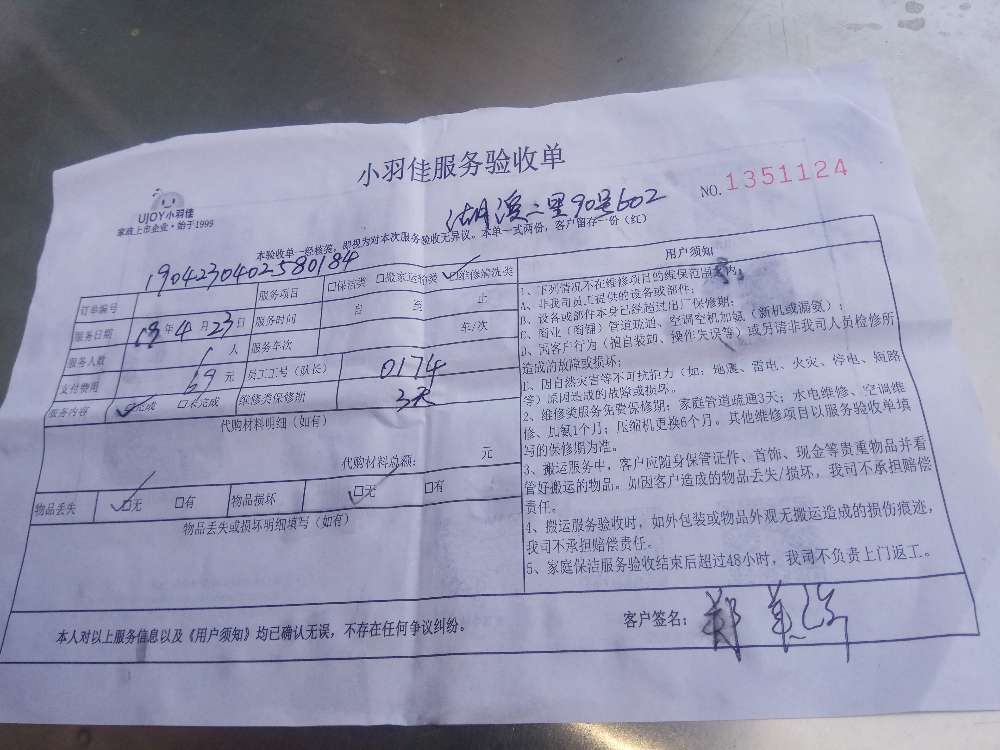 小羽佳服务验收单
NO.1351124
UJOY小羽佳
家政上市企业·始于1999
湖滨二里90号602
本验收单一经核签,即视为对本次服务验收无异议。本单一式两份,客户留存一份(红)
订单编号 1904230402580184 服务项目 □保洁类 □搬家运输类 □维修清洗类
服务日期 19年4月23日 服务时间 自 至 止
服务人数 1人 服务车次 车/次
支付费用 69元 员工工号(队长) 0174
服务内容 □完成 □未完成 维修类保修期 3天
代购材料明细(如有)
代购材料总额: 元
物品丢失 □无 □有 物品损坏 □无 □有
物品丢失或损坏明细填写(如有)
用户须知
1、下列情况不在维修项目的维保范围内:
A、非我司员工提供的设备或部件;
B、设备或部件本身已经超过出厂保修期;
C、商业(商铺)管道疏通、空调空机加氨(新机或漏氨);
D、因客户行为(擅自装卸、操作失误等)或另请非我司人员检修所
造成的故障或损坏;
E、因自然灾害等不可抗拒力(如:地震、雷电、火灾、停电、短路
等)原因造成的故障或损坏。
2、维修类服务免费保修期:家庭管道疏通3天;水电维修、空调维
修、加氨1个月;压缩机更换6个月。其他维修项目以服务验收单填
写的保修期为准。
3、搬运服务中,客户应随身保管证件、首饰、现金等贵重物品并看
管好搬运的物品。如因客户造成的物品丢失/损坏,我司不承担赔偿
责任。
4、搬运服务验收时,如外包装或物品外观无搬运造成的损伤痕迹,
我司不承担赔偿责任。
5、家庭保洁服务验收结束后超过48小时,我司不负责上门返工。
本人对以上服务信息以及《用户须知》均已确认无误,不存在任何争议纠纷。
客户签名: 郑